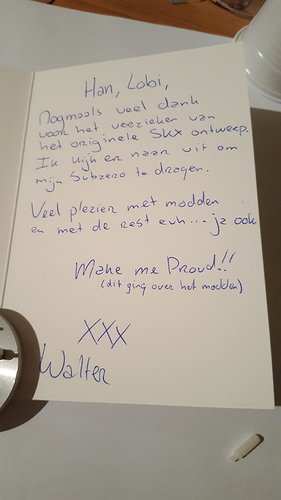 Han, Lobi,
Nogmaals veel dank
voor het verzieken van
het originele SKX ontwerp.
Ik kijk er naar uit om
mijn Subzero te dragen.
Veel plezier met modden
en met de rest euh... ja ook
Make me Proud!!
(dit ging over het modden)
XXX
Walter